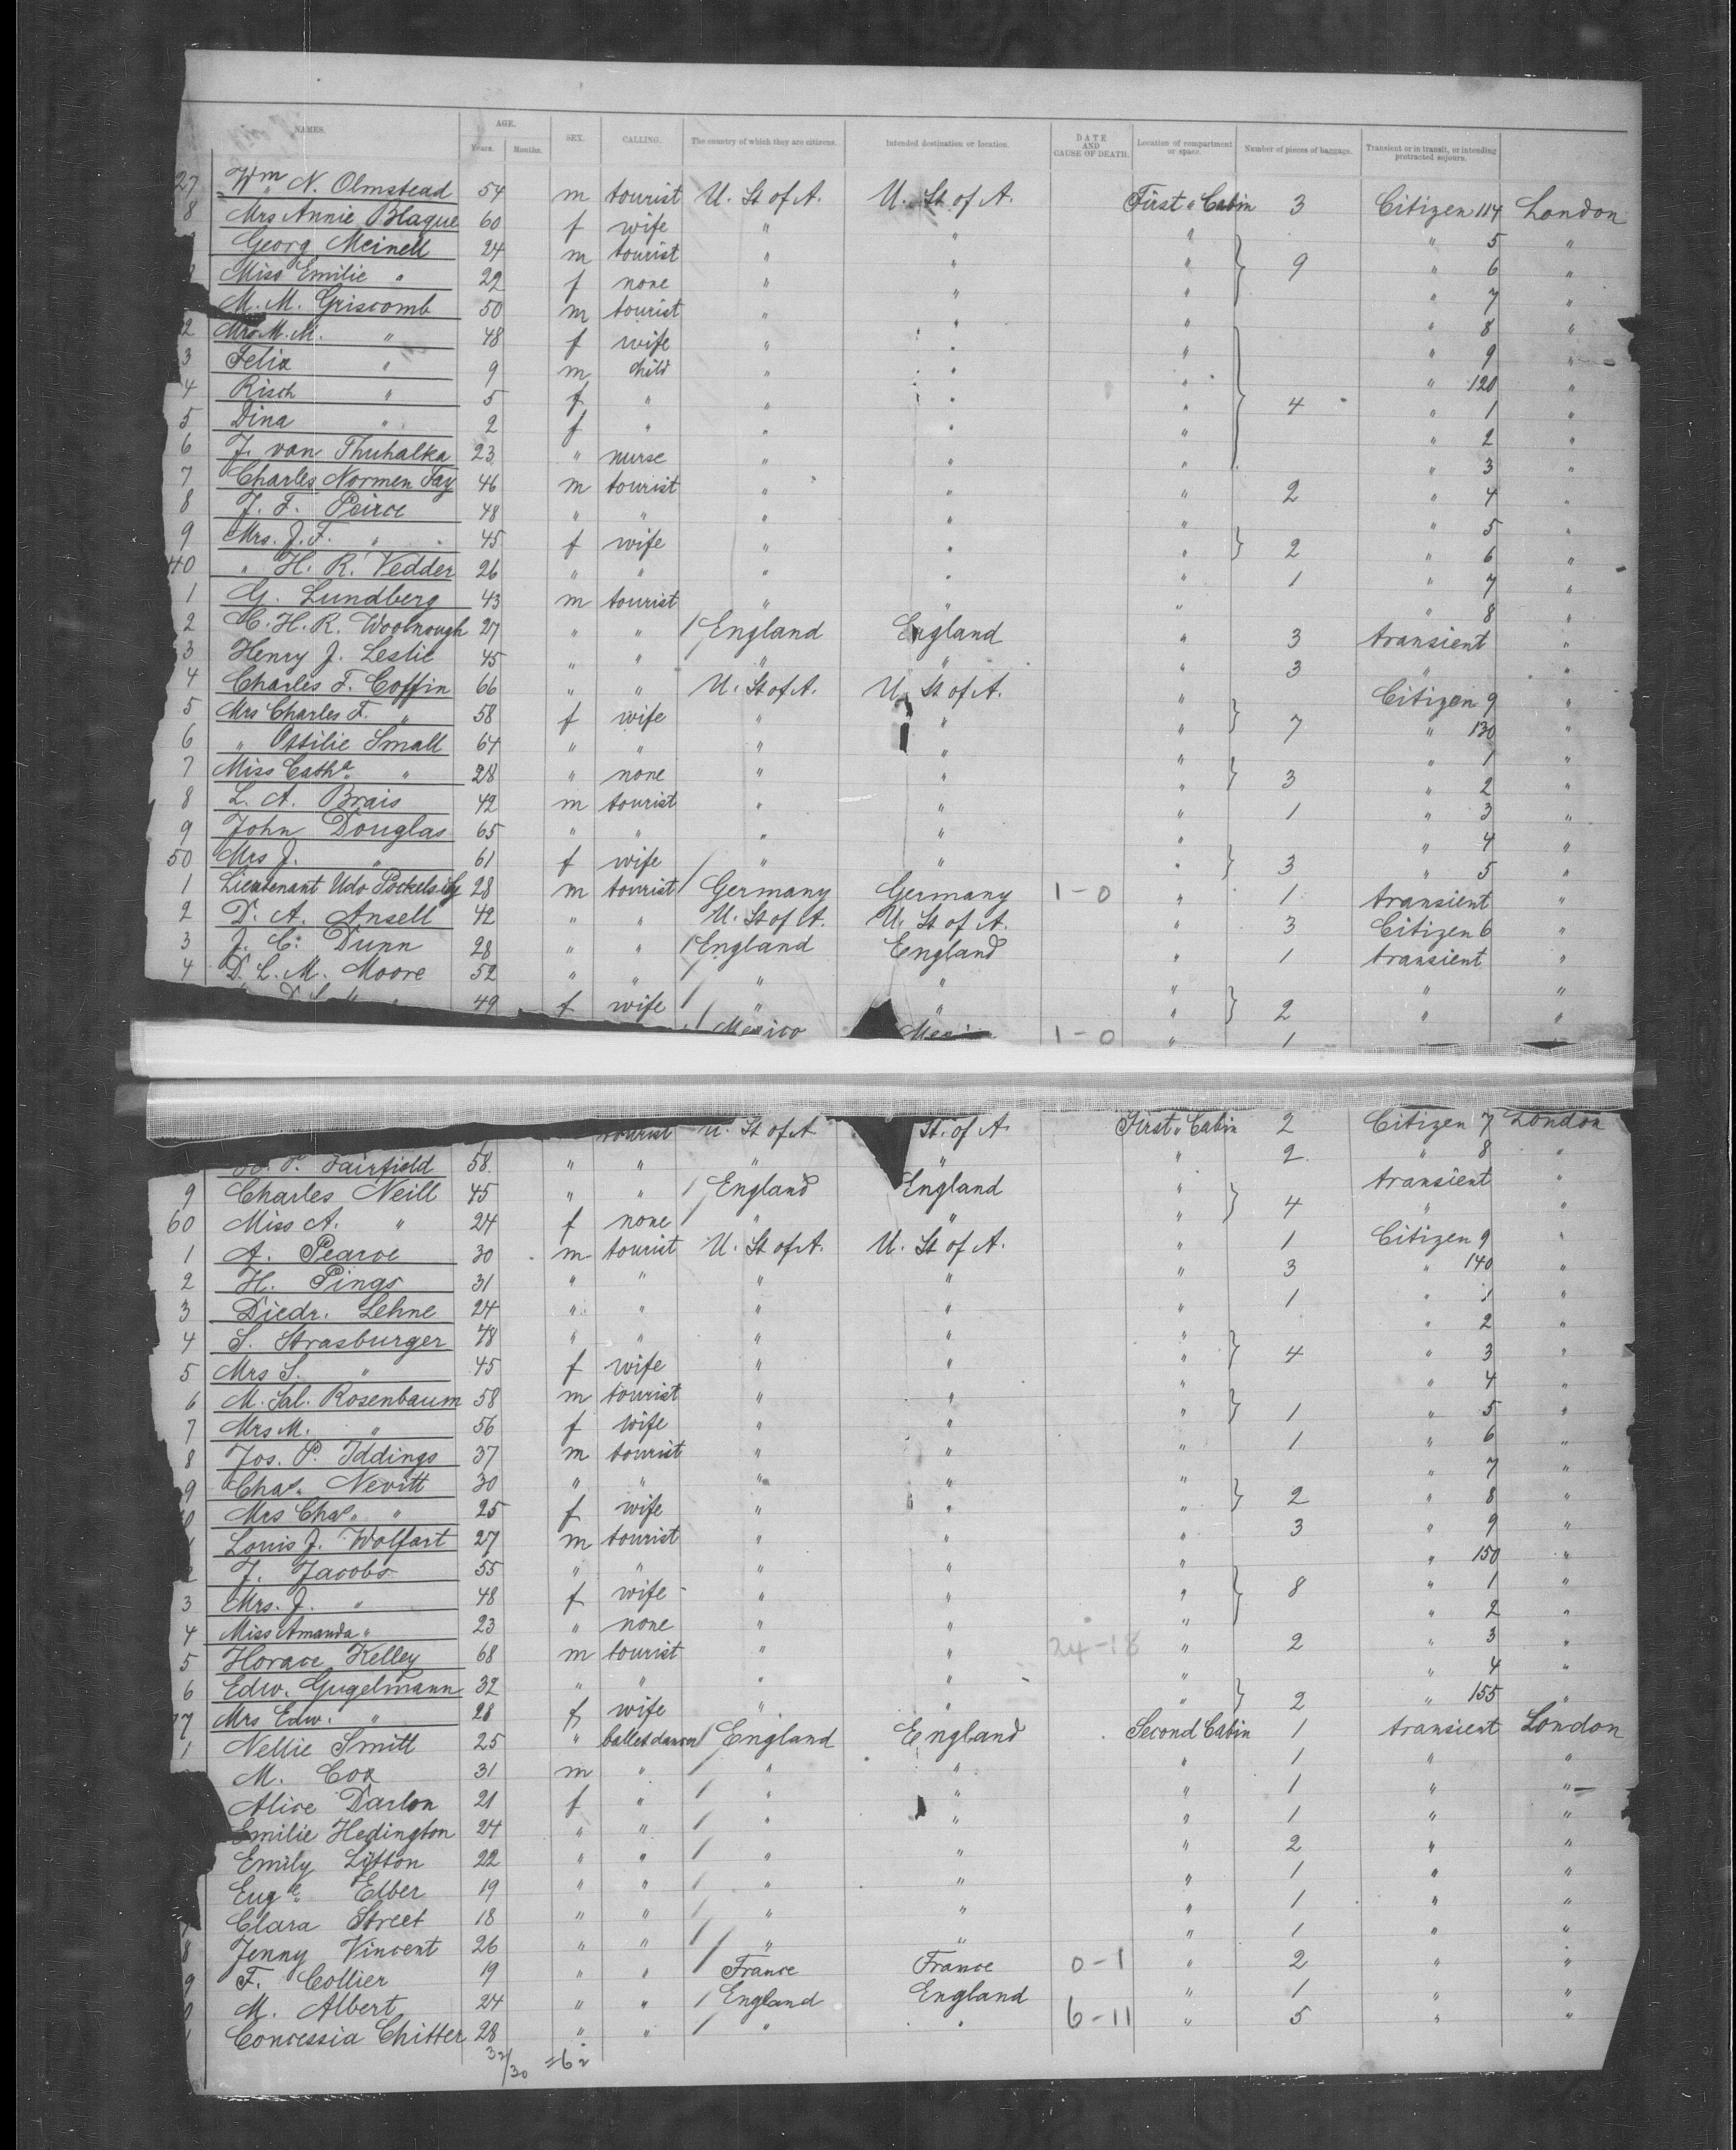 NAMES. AGE. Years. Months. SEX. CALLING. The country of which they are citizens. Intended destination or location. DATE AND CAUSE OF DEATH. Location of compartment or space. Number of pieces of baggage. Transient or in transit, or intending protracted sojourn.
27 Wm N. Olmstead 54 m tourist U. St of A. U. St of A. First " Cabin 3 Citizen 114 London
8 Mrs Annie Blaque 60 f wife " " " " 5 "
Georg Meinell 24 m tourist " " " 9 " 6 "
Miss Emilie " 22 f none " " " " 7 "
M. M. Griscomb 50 m tourist " " " " 8 "
2 Mrs M. M. " 48 f wife " " " " 9 "
3 Felix " 9 m child " " " " 120 "
4 Risch " 5 f " " " " 4 " 1 "
5 Dina " 2 f " " " " " 2 "
6 J. van Thuhalka 23 " nurse " " " " 3 "
7 Charles Normen Fay 46 m tourist " " " 2 " 4 "
8 J. F. Peirce 48 " " " " " " 5 "
9 Mrs. J. F. " 45 f wife " " " 2 " 6 "
40 " H. R. Vedder 26 " " " " " 1 " 7 "
1 G. Lundberg 43 m tourist " " " " 8 "
2 C. H. R. Woolnough 27 " " England England " 3 transient "
3 Henry J. Leslie 45 " " " " " 3 " "
4 Charles F. Coffin 66 " " U. St of A. U. St of A. " Citizen 9 "
5 Mrs Charles F. " 58 f wife " " " 7 " 130 "
6 " Ottilie Small 64 " " " " " " 1 "
7 Miss Catha " 28 " none " " " 3 " 2 "
8 L. A. Brais 42 m tourist " " " 1 " 3 "
9 John Douglas 65 " " " " " " 4 "
50 Mrs J. " 61 f wife " " " 3 " 5 "
1 Lieutenant Udo Pockels 28 m tourist Germany Germany 1-0 " 1 transient "
2 D. A. Ansell 42 " " U. St of A. U. St of A. " 3 Citizen 6 "
3 J. C. Dunn 28 " " England England " 1 transient "
4 D. L. M. Moore 52 " " " " " " "
49 f wife " " " 2 " "
Mexico 1-0 " 1
tourist U. St of A St. of A First " Cabin 2 Citizen 7 London
Fairfield 58 " " " " " 2 " 8 "
9 Charles Neill 45 " " England England " transient "
60 Miss A. " 24 f none " " " 4 " "
1 A. Pearce 30 m tourist U. St of A. U. St of A. " 1 Citizen 9 "
2 H. Pings 31 " " " " " 3 " 140 "
3 Diedr. Lehne 24 " " " " " 1 " 1 "
4 S. Strasburger 48 " " " " " " 2 "
5 Mrs S. " 45 f wife " " " 4 " 3 "
6 M. Sal. Rosenbaum 58 m tourist " " " " 4 "
7 Mrs M. " 56 f wife " " " 1 " 5 "
8 Jos. P. Iddings 37 m tourist " " " 1 " 6 "
9 Chas. Nevitt 30 " " " " " " 7 "
0 Mrs Chas. " 25 f wife " " " 2 " 8 "
Louis J. Wolfart 27 m tourist " " " 3 " 9 "
2 J. Jacobs 55 " " " " " " 150 "
3 Mrs. J. " 48 f wife " " " 8 " 1 "
4 Miss Amanda " 23 " none " " " " 2 "
5 Horace Kelley 68 m tourist " " 24-18 " 2 " 3 "
6 Edw. Gugelmann 32 " " " " " " 4 "
77 Mrs Edw. " 28 f wife " " " 2 " 155 "
1 Nellie Smitt 25 " ballet dancer England England Second Cabin 1 transient London
M. Cox 31 m " " " " 1 " "
Alice Darlon 21 f " " " " 1 " "
Emilie Hedington 24 " " " " " 1 " "
Emily Litton 22 " " " " " 2 " "
Euge. Elber 19 " " " " " 1 " "
Clara Street 18 " " " " " 1 " "
8 Jenny Vincent 26 " " " " " 1 " "
9 F. Collier 19 " " France France 0-1 " 2 " "
0 M. Albert 24 " " England England " 1 " "
Concessia Chitter 28 " " " " 6-11 " 5 " "
32/30 =62